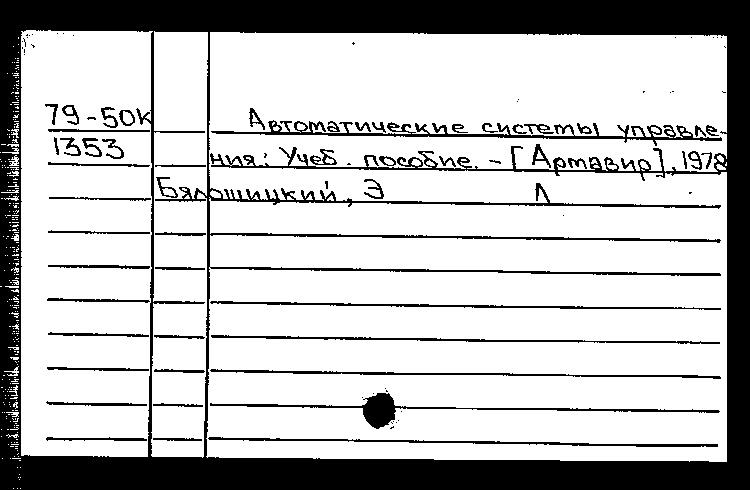 79-50к Автоматические системы управле-
1353 ния: Учеб. пособие. - [Армавир], 1978
Бялошицкий, Э Л